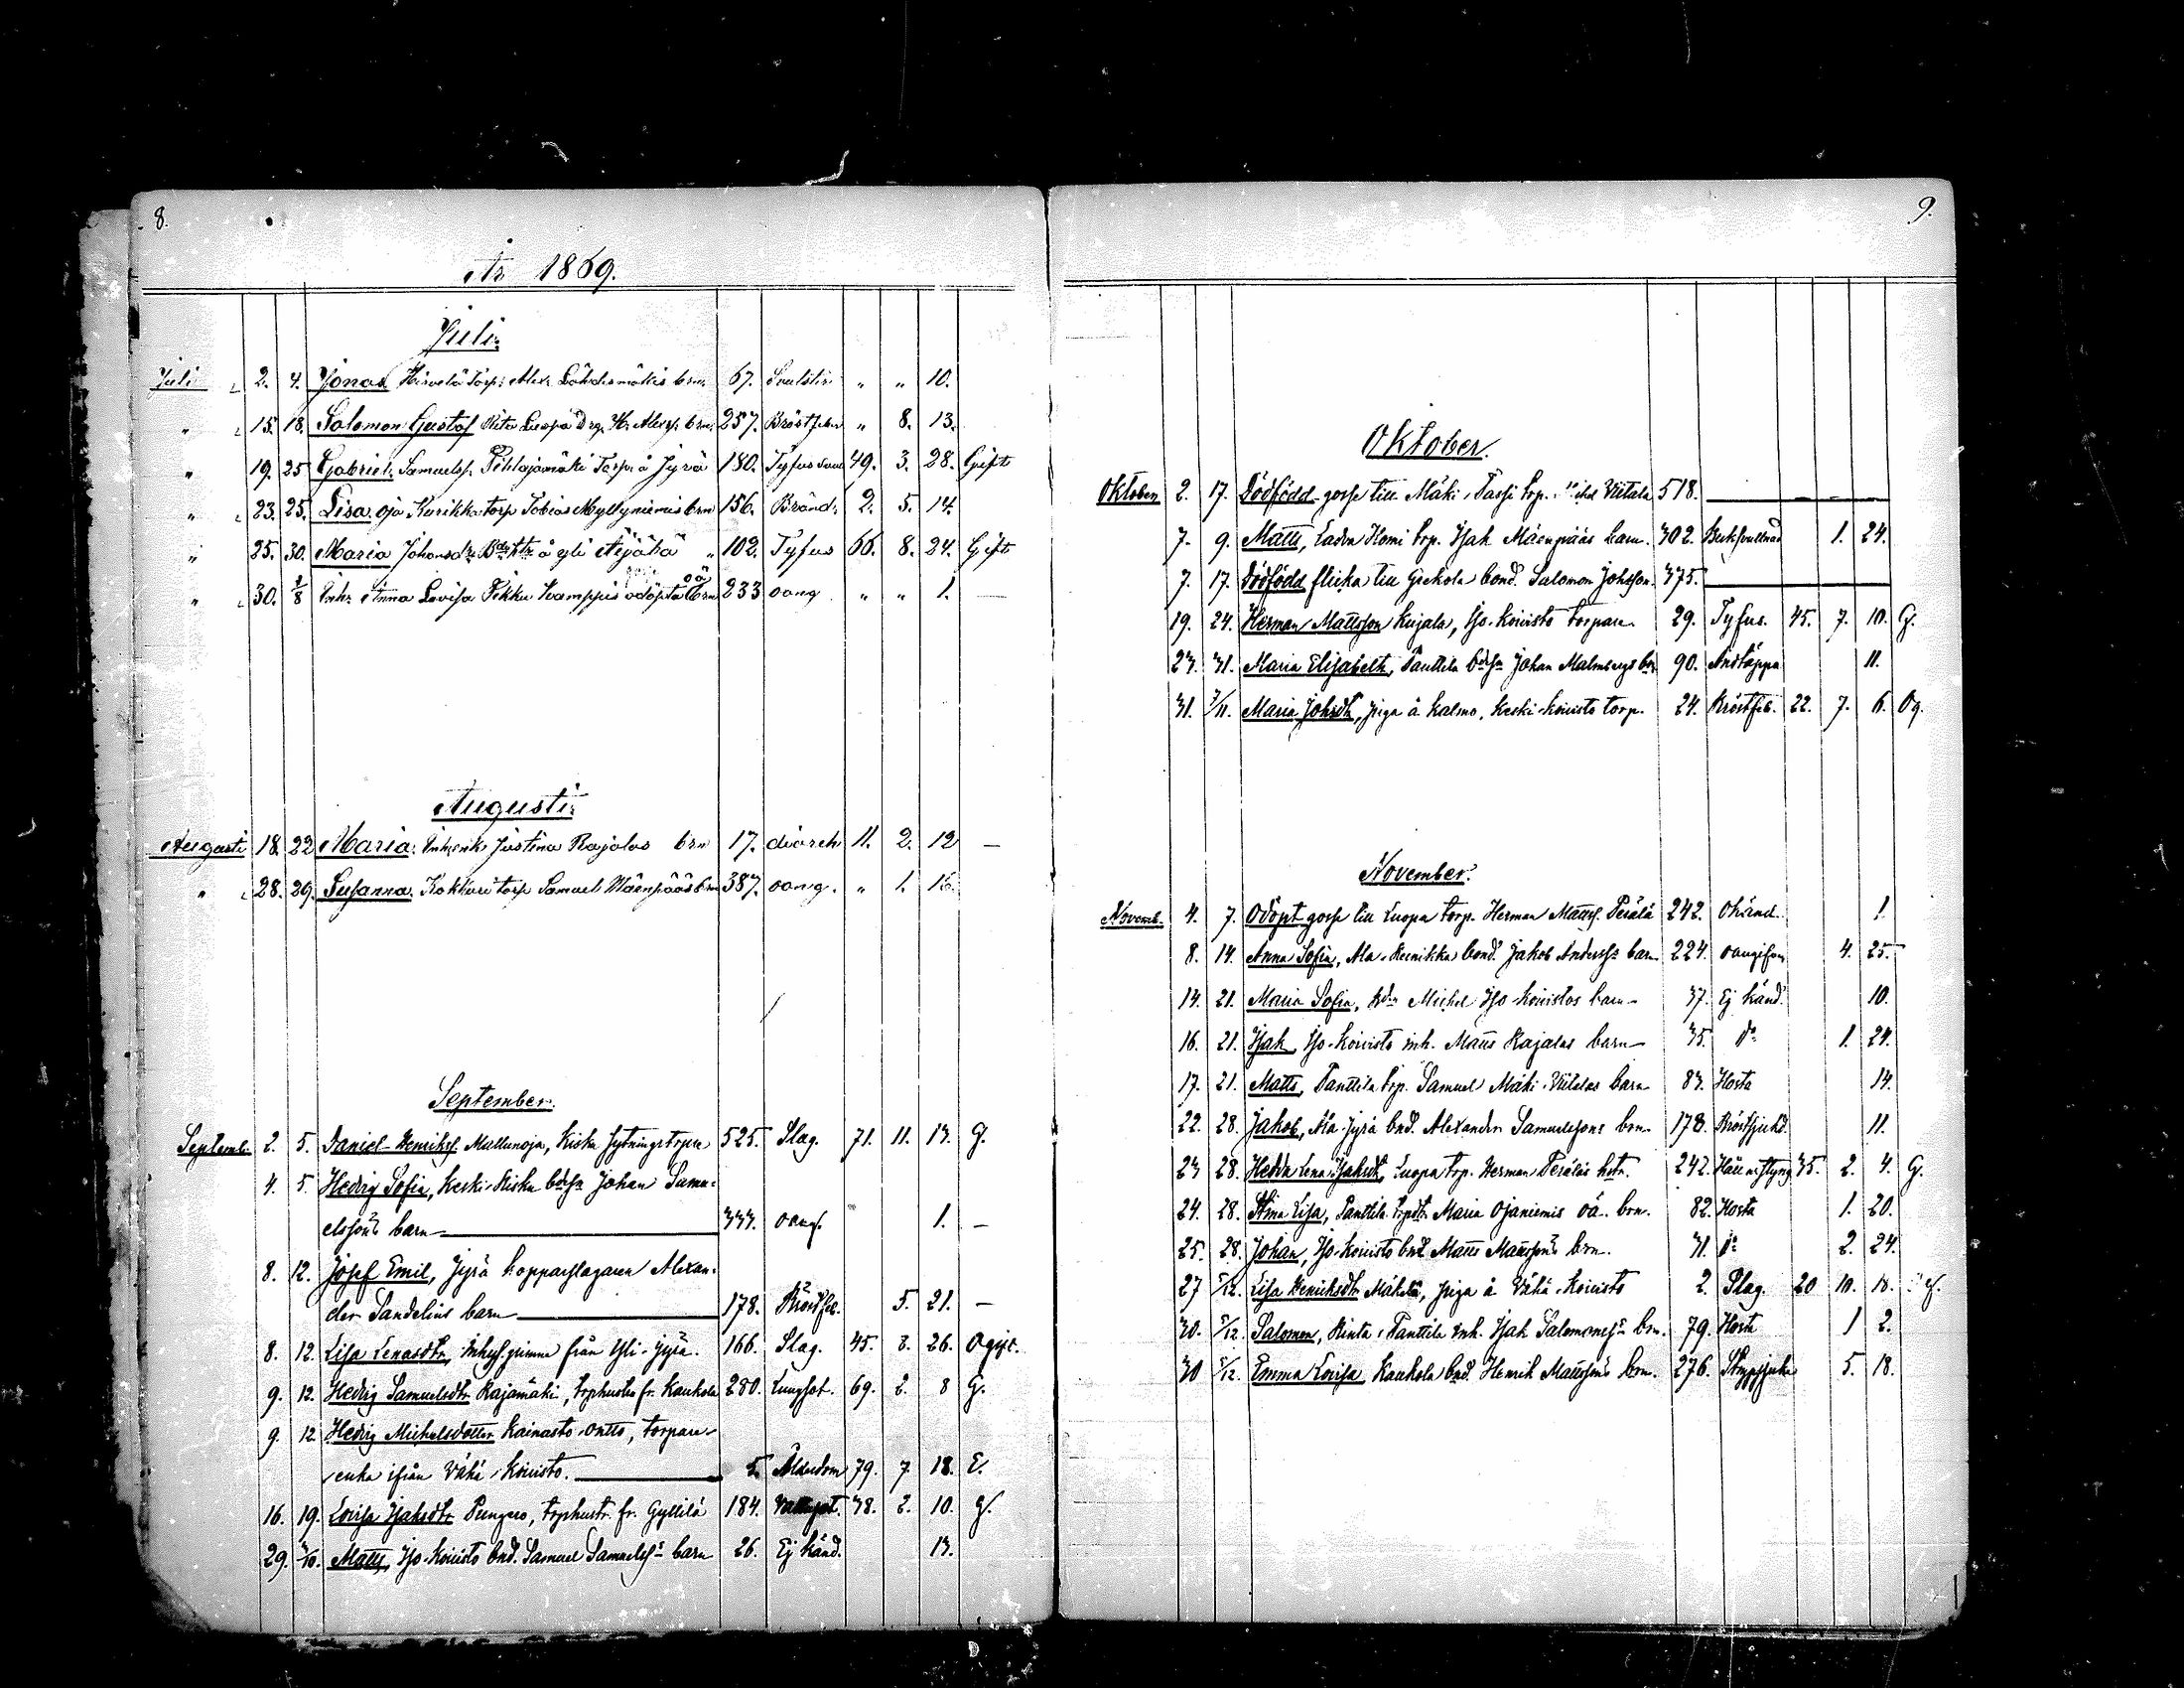 8.
År 1869.
Juli.
Juli 2. 4. Jonas Hirvelä Torp. Alex. Lähdesmäkis brn. 67. " " 10.
" 15. 18. Salomon Gustaf Luopa H. Alexs. brn. 257. Bröstfeber " 8. 13.
" 19. 25 Gabriel Samuelss. Pihlajamäki Torp. å Jyrä 180. Tyfus 49. 3. 28. Gift
" 23. 25. Lisa Oja Kurikka torp Tobias Myllyniemis brn 156. Bränd. 2. 5. 14.
" 25. 30. Maria Johansdr å yli Äijälä " 102. Tyfus 66. 8. 24. Gift
" 30. 1/8 Inh. Anna Lovisa Pikku Kamppis odöpta oä brn 233 oang " " 1. —
Augusti.
Augusti 18. 22 Maria. Inh.enk. Justina Rajalas brn 17. diarrh 11. 2. 12 —
" 28. 29. Susanna. Kokkari torp Samuel Mäenpääs brn 387. oang. " 1. 16.
September.
Septemb. 2. 5. Daniel Henrikss. Mallunoja, Kiska sytningstorpare 525. Slag. 71. 11. 13. G.
4. 5. Hedvig Sofia, Keski-Kiska bdesn Johan Samu-
elssons barn 333. oang. 1. —
8. 12. Josef Emil, Jyrä kopparslagaren Alexan-
der Sandelius barn 178. Bröstfeb. 5. 21. —
8. 12. Lisa Lenasdtr, Inhys.qvinna från Yli-Jyrä. 166. Slag. 45. 8. 26. Ogift.
9. 12. Hedvig Samuelsdtr Rajamäki, torphustru fr. Kaukola 280. Lungsot. 69. 2. 8 G.
9. 12 Hedvig Michelsdotter Kainasto-Ontto, torpare-
enka ifrån Vähä-Koivisto. 5. Ålderdom 79. 7. 18. E.
16. 19. Lovisa Isaksdtr Pungus, torphustr. fr. Gyllilä 184. Vattusot. 38. 2. 10. G.
29. 3/10. Matts, Iso-Koivisto bnd. Samuel Samuelss barn 26. Ej känd. 13.
9.
Oktober.
Oktober 2. 17. Dödfödd gosse till Mäki-Passi trp. Viitala 518.
7. 9. Matts, Ladva Homi trp. Isak Mäenpääs barn. 302. 1. 24.
7. 17. Dödfödd flicka till Gjekola bond. Salomon Johsson. 375.
19. 24. Herman Mattsson Kujala, Iso-Koivisto torpare. 29. Tyfus. 45. 7. 10. G.
23. 31. Maria Elisabeth, Panttila bdesn Johan Malmbergs brn 90. Andtäppa 11.
31. 7/11. Maria Johsdtr, piga å Kalmo, Keski-Koivisto torp. 24. Bröstfeb. 22. 7. 6. Og.
November.
Novemb. 4. 7. Odöpt gosse till Luopa torp. Herman Mattss. Perälä 242. Okänd. 1.
8. 14. Anna Sofia, Ala-Reinikka bond. Jakob Anderss barn 224. oangifven 4. 25.
14. 21. Maria Sofia, bdn Michel Iso-Koivistos barn 37. Ej känd. 10.
16. 21. Isak, Iso-Koivisto inh. Matts Rajalas barn 35. Do 1. 24.
17. 21. Matts, Panttila trp. Samuel Mäki-Viitalas barn 83. Hosta 14.
22. 28. Jakob, Ala-Jyrä bnd. Alexander Samuelssons brn. 178. Bröstsjukd. 11.
23 28. Hedda Lena Isaksdtr, Luopa trp. Herman Peräläs hstr. 242. Håll o. styng 35. 2. 4. G.
24. 28. Stina Lisa, Panttila trpdtr Maria Ojaniemis oä. brn. 82. Hosta 1. 20.
25. 28. Johan, Iso-Koivisto bnd Matts Mattssons brn. 31. Do 2. 24.
27 5/12. Lisa Henriksdtr Mäkelä, piga å Vähä-Koivisto 2. Slag. 20 10. 18.
30. 5/12. Salomon, Rinta-Panttila inh. Isak Salomonss brn. 79. Hosta 1 2.
30 5/12. Emma Lovisa Kaukola bnd. Henrik Mattssons brn. 276. Strypsjuka 5. 18.